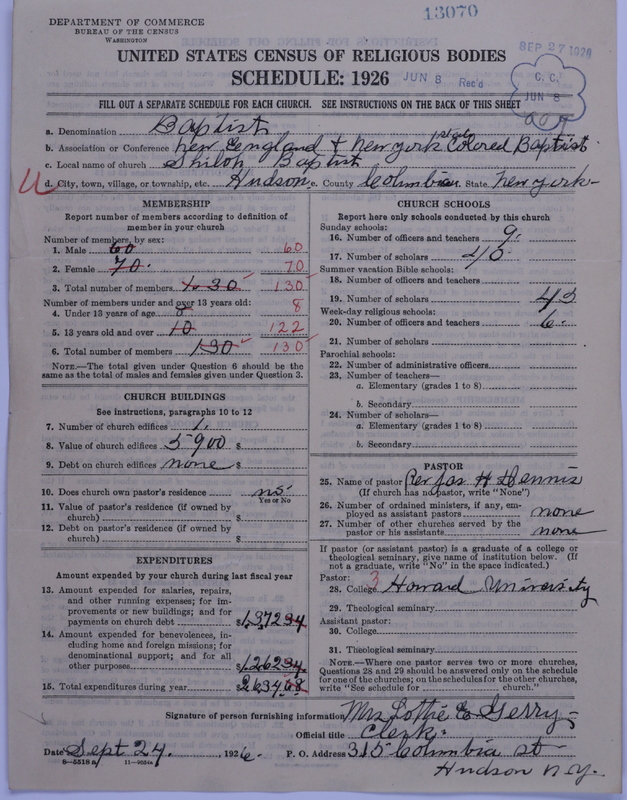 13070
DEPARTMENT OF COMMERCE
BUREAU OF THE CENSUS
WASHINGTON
SEP 27 1926
UNITED STATES CENSUS OF RELIGIOUS BODIES
SCHEDULE: 1926
JUN 8 Rec'd
C. C.
JUN 8
FILL OUT A SEPARATE SCHEDULE FOR EACH CHURCH. SEE INSTRUCTIONS ON THE BACK OF THIS SHEET
a. Denomination Baptist
b. Association or Conference New England & New york state Colored Baptist
c. Local name of church Shiloh Baptist
d. City, town, village, or township, etc. Hudson e. County Columbia State New york
MEMBERSHIP
Report number of members according to definition of member in your church
Number of members, by sex:
1. Male 60 60
2. Female 70. 70
3. Total number of members 130 130
Number of members under and over 13 years old:
4. Under 13 years of age 8 8
5. 13 years old and over 10 122
6. Total number of members 130 130
NOTE.—The total given under Question 6 should be the same as the total of males and females given under Question 3.
CHURCH BUILDINGS
See instructions, paragraphs 10 to 12
7. Number of church edifices 1.
8. Value of church edifices 5900 $
9. Debt on church edifices none $
10. Does church own pastor's residence no
Yes or No
11. Value of pastor's residence (if owned by church) $
12. Debt on pastor's residence (if owned by church) $
EXPENDITURES
Amount expended by your church during last fiscal year
13. Amount expended for salaries, repairs, and other running expenses; for improvements or new buildings; and for payments on church debt $1,372.34
14. Amount expended for benevolences, including home and foreign missions; for denominational support; and for all other purposes $1,262.34
15. Total expenditures during year $2634.68
CHURCH SCHOOLS
Report here only schools conducted by this church
Sunday schools:
16. Number of officers and teachers 9.
17. Number of scholars 40.
Summer vacation Bible schools:
18. Number of officers and teachers
19. Number of scholars 43
Week-day religious schools:
20. Number of officers and teachers 6.
21. Number of scholars
Parochial schools:
22. Number of administrative officers
23. Number of teachers—
a. Elementary (grades 1 to 8)
b. Secondary
24. Number of scholars—
a. Elementary (grades 1 to 8)
b. Secondary
PASTOR
25. Name of pastor Rev Jas H Dennis
(If church has no pastor, write "None")
26. Number of ordained ministers, if any, employed as assistant pastors none
27. Number of other churches served by the pastor or his assistants none
If pastor (or assistant pastor) is a graduate of a college or theological seminary, give name of institution below. (If not a graduate, write "No" in the space indicated.)
Pastor:
28. College 3 Howard University
29. Theological seminary
Assistant pastor:
30. College
31. Theological seminary
NOTE.—Where one pastor serves two or more churches, Questions 28 and 29 should be answered only on the schedule for one of the churches; on the schedules for the other churches, write "See schedule for church."
Signature of person furnishing information Mrs Lottie E Gerry
Official title Clerk.
Date Sept 24. , 1926. P. O. Address 315 Columbia st
Hudson N.Y.
8—5518 a 11—9054a